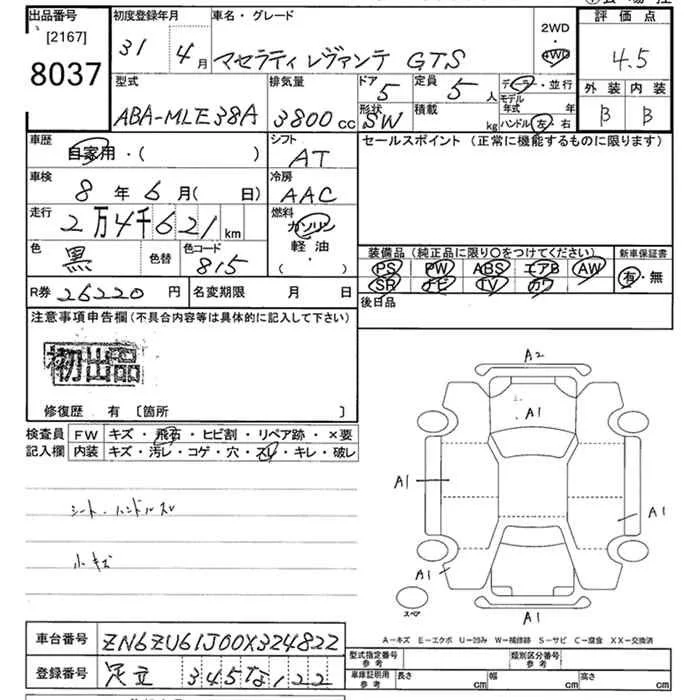 出品番号 [2167] 8037
初度登録年月 31 4月
車名・グレード マセラティ レヴァンテ GTS
2WD・4WD
評価点 4.5
型式 ABA-MLE38A
排気量 3800cc
ドア 5
定員 5人
形状 SW
積載 kg
ディーラー・並行
モデル年式 年
ハンドル 左・右
外装 B
内装 B
車歴 自家用・( )
シフト AT
セールスポイント(正常に機能するものに限ります)
車検 8年 6月( 日)
冷房 AAC
走行 2万4千621km
燃料 ガソリン 軽油・( )
色 黒
色替
色コード 815
装備品(純正品に限り○をつけてください)
新車保証書 有・無
PS PW ABS エアB AW
SR ナビ TV カワ
R券 26220円
名変期限 月 日
後日品
注意事項申告欄(不具合内容等は具体的に記入して下さい)
初出品
修復歴 有 〔箇所 〕
検査員記入欄
FW キズ・飛石・ヒビ割・リペア跡・×要
内装 キズ・汚レ・コゲ・穴・スレ・キレ・破レ
シート・ハンドルスレ
小キズ
A2
A1
A1
A1
A1
A1
スペア
A-キズ E-エクボ U-凹み W-補修跡 S-サビ C-腐食 XX-交換済
車台番号 ZN6ZU61J00X324822
登録番号 足立 345 な 122
型式指定番号 参考
類別区分番号 参考
車庫証明用 参考 長さ cm 幅 cm 高さ cm